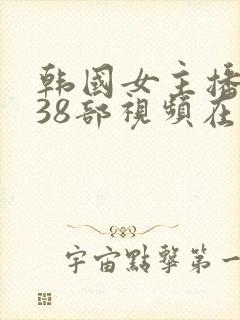 韩國女主播
38部視頻在
宇宙點擊第一